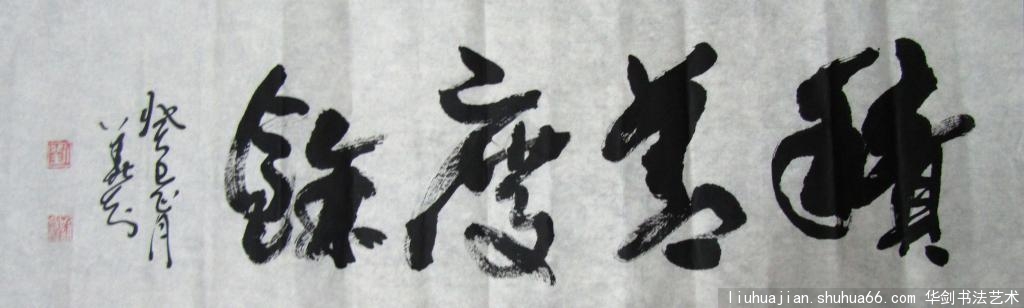 積善慶餘
癸巳冑月
liuhuajian.shuhua66.com 华剑书法艺术